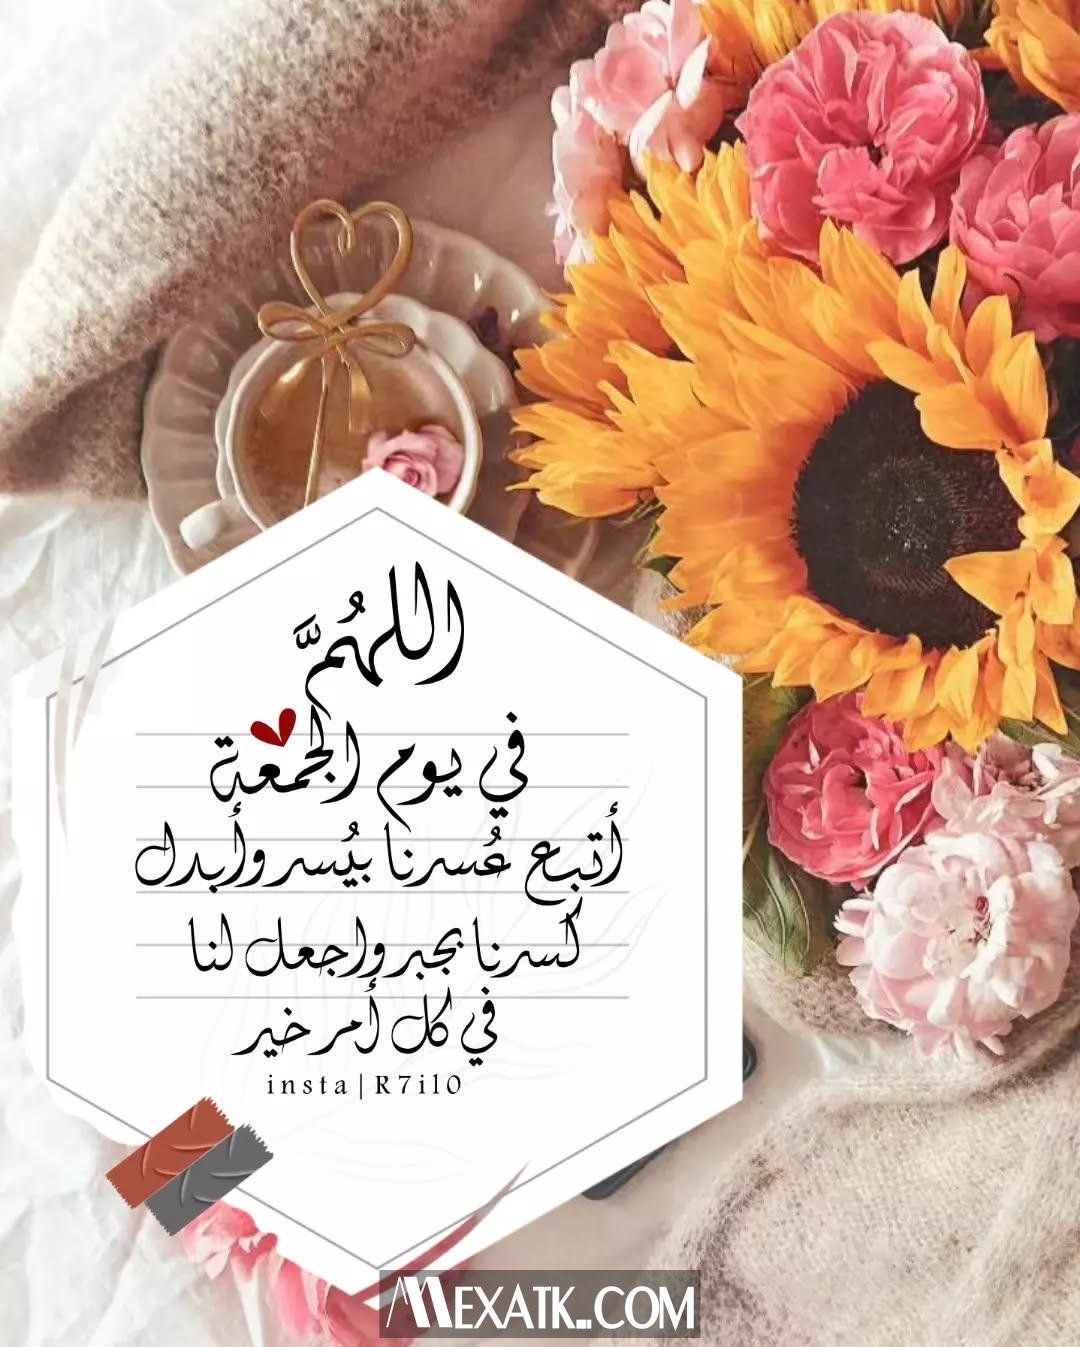 اللهُمَّ
في يوم الجمعة
أتبع عُسرنا بيُسر وأبدل
كسرنا بجبر واجعل لنا
في كل أمر خير
insta|R7il0
MEXATK.COM